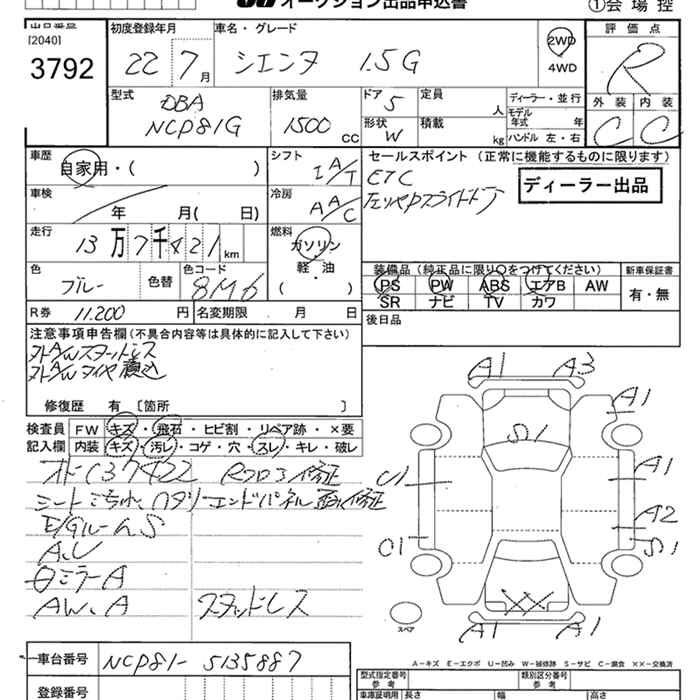 オークション出品申込書
①会場控
出品番号
[2040]
3792
初度登録年月
22 7月
車名・グレード
シエンタ 1.5G
2WD
4WD
評価点
R
外装 内装
C C
型式
DBA
NCP81G
排気量
1500 cc
ドア 5
定員 人
形状 W
積載 kg
ディーラー・並行
モデル年式 年
ハンドル 左・右
車歴
自家用・( )
シフト
IA/T
セールスポイント (正常に機能するものに限ります)
ETC
ディーラー出品
車検
年 月( 日)
冷房
AA/C
走行
13万7千421km
燃料
ガソリン
軽・油
( )
色
ブルー
色替
色コード
8M6
装備品 (純正品に限り○をつけてください)
新車保証書
PS PW ABS エアB AW
SR ナビ TV カワ
有・無
R券 11.200 円
名変期限 月 日
後日品
注意事項申告欄 (不具合内容等は具体的に記入して下さい)
外A/Wスタットレス
外A/Wタイヤ積込
修復歴 有 [箇所 ]
検査員
記入欄
FW キズ・飛石・ヒビ割・リペア跡・×要
内装 キズ・汚レ・コゲ・穴・スレ・キレ・破レ
A1 A3
A1
S1
U1
A1
A2
C1
S1
A1 A1
スペア
E/Gルーム S
A.U
ミラーA
AW.A スタッドレス
A−キズ E−エクボ U−凹み W−補修跡 S−サビ C−腐食 ××−交換済
車台番号 NCP81-5135887
登録番号
型式指定番号
参考
類別区分番号
参考
車庫証明用
参考
長さ 幅 高さ